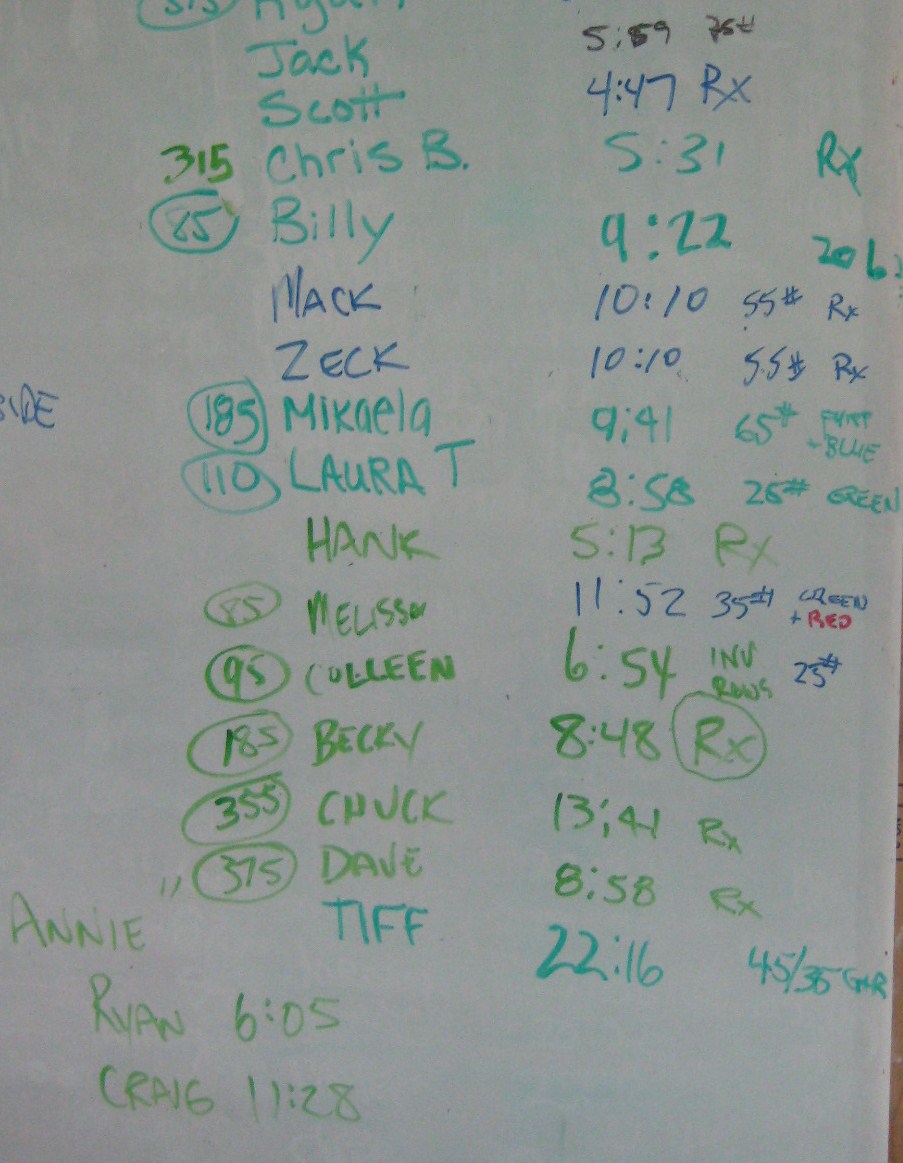 Jack 5:59 75#
Scott 4:47 Rx
315 Chris B. 5:31 Rx
85 Billy 9:22
MACK 10:10 55# Rx
ZECK 10:10 55# Rx
185 Mikaela 9:41 65# + BLUE
110 LAURA T 8:58 25# GREEN
HANK 5:13 Rx
85 MELISSA 11:52 35# GREEN + RED
95 COLLEEN 6:54 INV ROWS 25#
185 BECKY 8:48 Rx
355 CHUCK 13:41 Rx
375 DAVE 8:58 Rx
ANNIE TIFF 22:16 45/35
RYAN 6:05
CRAIG 11:28